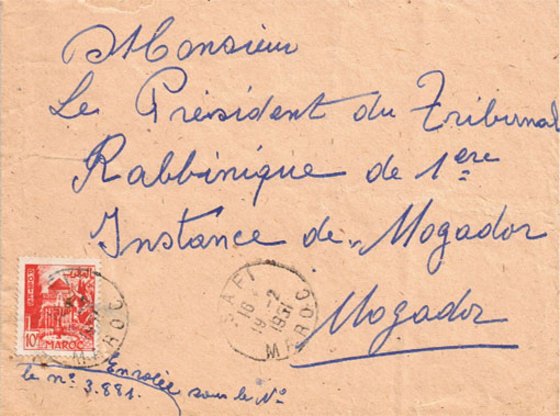 Monsieur
Le Président du Tribunal
Rabbinique de 1ere
Instance de Mogador
Mogador
SAFI
16
19-2
1951
MAROC
10F
MAROC
MAROC
Enrolée sous le No
le no 3.881.